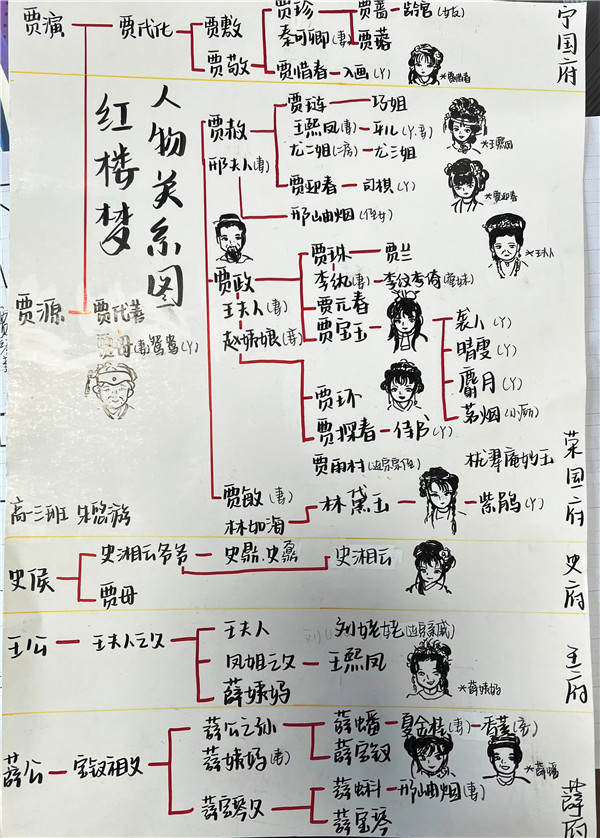 宁国府
贾演 贾代化 贾敷 贾珍 贾蔷 龄官(女友)
秦可卿(妻) 贾蓉
贾敬 贾惜春 入画(丫)
*贾惜春
红楼梦
人物关系图
贾赦 贾琏 巧姐
邢夫人(妻) 王熙凤(妻) 平儿(丫.妾)
*王熙凤
尤二姐(二房) 尤三姐
贾迎春 司棋(丫)
*贾迎春
邢岫烟(侄女)
*王夫人
贾政 贾珠 贾兰
王夫人(妻) 李纨(妻) 李纹李绮(寡妹)
赵姨娘(妾) 贾元春
贾宝玉 袭人(丫)
晴雯(丫)
麝月(丫)
茗烟(小厮)
贾源 贾代善
贾母(妻)鸳鸯(丫)
贾环
贾探春 侍书(丫)
贾雨村(远房宗侄) 栊翠庵妙玉
贾敏(妻) 林黛玉 紫鹃(丫)
林如海
荣国府
高二班
史侯 史湘云爷爷 史鼎.史鼐 史湘云
贾母
史府
王公 王夫人之父 王夫人 刘姥姥(远房亲戚)
凤姐之父 王熙凤
薛姨妈
*薛姨妈
王府
薛公 宝钗祖父 薛公之孙 薛蟠 夏金桂(妻) 香菱(妾)
薛姨妈(妻) 薛宝钗
薛宝琴父 薛蝌 邢岫烟(妻)
薛宝琴
薛府